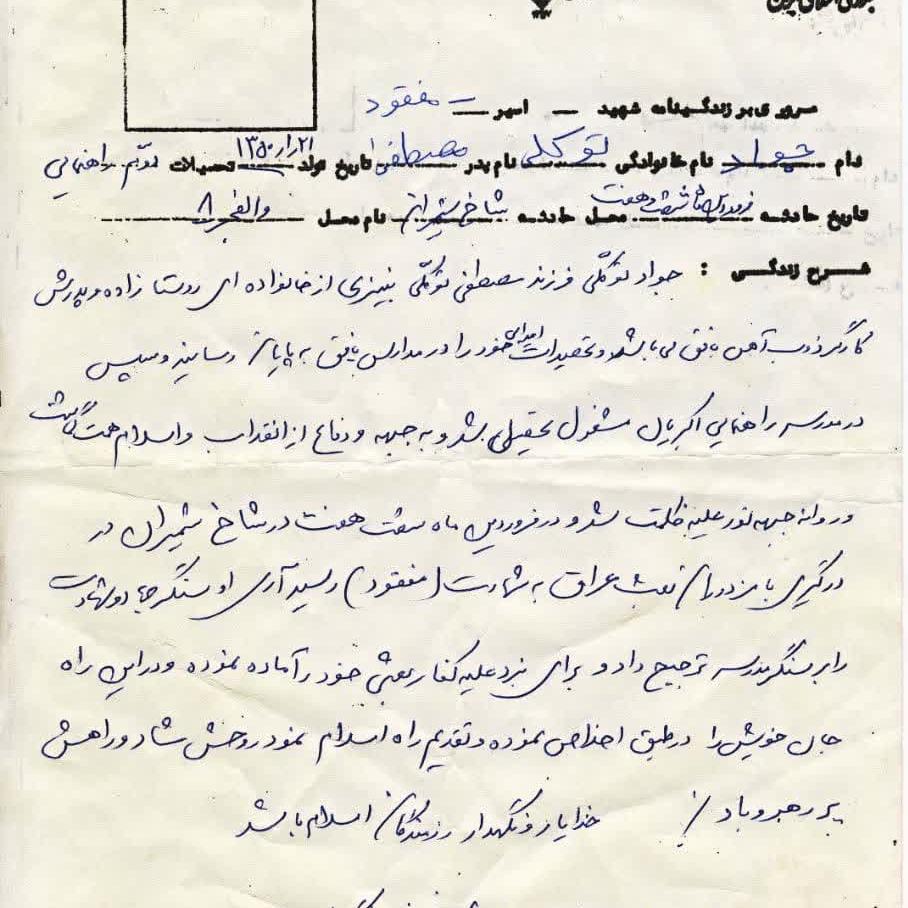 جمهوری اسلامی ایران
مروری بر زندگینامه شهید – اسیر – مفقود
نام جواد نام خانوادگی توکلی نام پدر مصطفی تاریخ تولد ۲۱ر۱ر۱۳۵۰ تحصیلات دوم راهنمایی
تاریخ حادثه فروردین ماه شصت و هفت محل حادثه شاخ شمیران نام محل والفجر ۸
شرح زندگی : جواد توکلی فرزند مصطفی توکلی نیز از خانواده ای روستا زاده و پدرش
کارگر ذوب آهن بافق می باشد و تحصیلات ابتدایی خود را در مدارس بافق به پایان رسانیده و سپس
در مدرسه راهنمایی مشغول تحصیل بشد و به جبهه و دفاع از انقلاب و اسلام همت گماشت
و روانه جبهه نور علیه ظلمت شد و در فروردین ماه شصت هفت در شاخ شمیران در
درگیری با مزدوران بعث عراق به شهادت (مفقود) رسید آری او سنگر جهاد و شهادت
را بر سنگر مدرسه ترجیح داد و برای نبرد علیه کفار بعثی خود را آماده نموده و در این راه
جان خویش را در طبق اخلاص نموده و تقدیم راه اسلام نمود روحش شاد و راهش
پر رهرو باد / خدا یار و نگهدار رزمندگان اسلام باشد